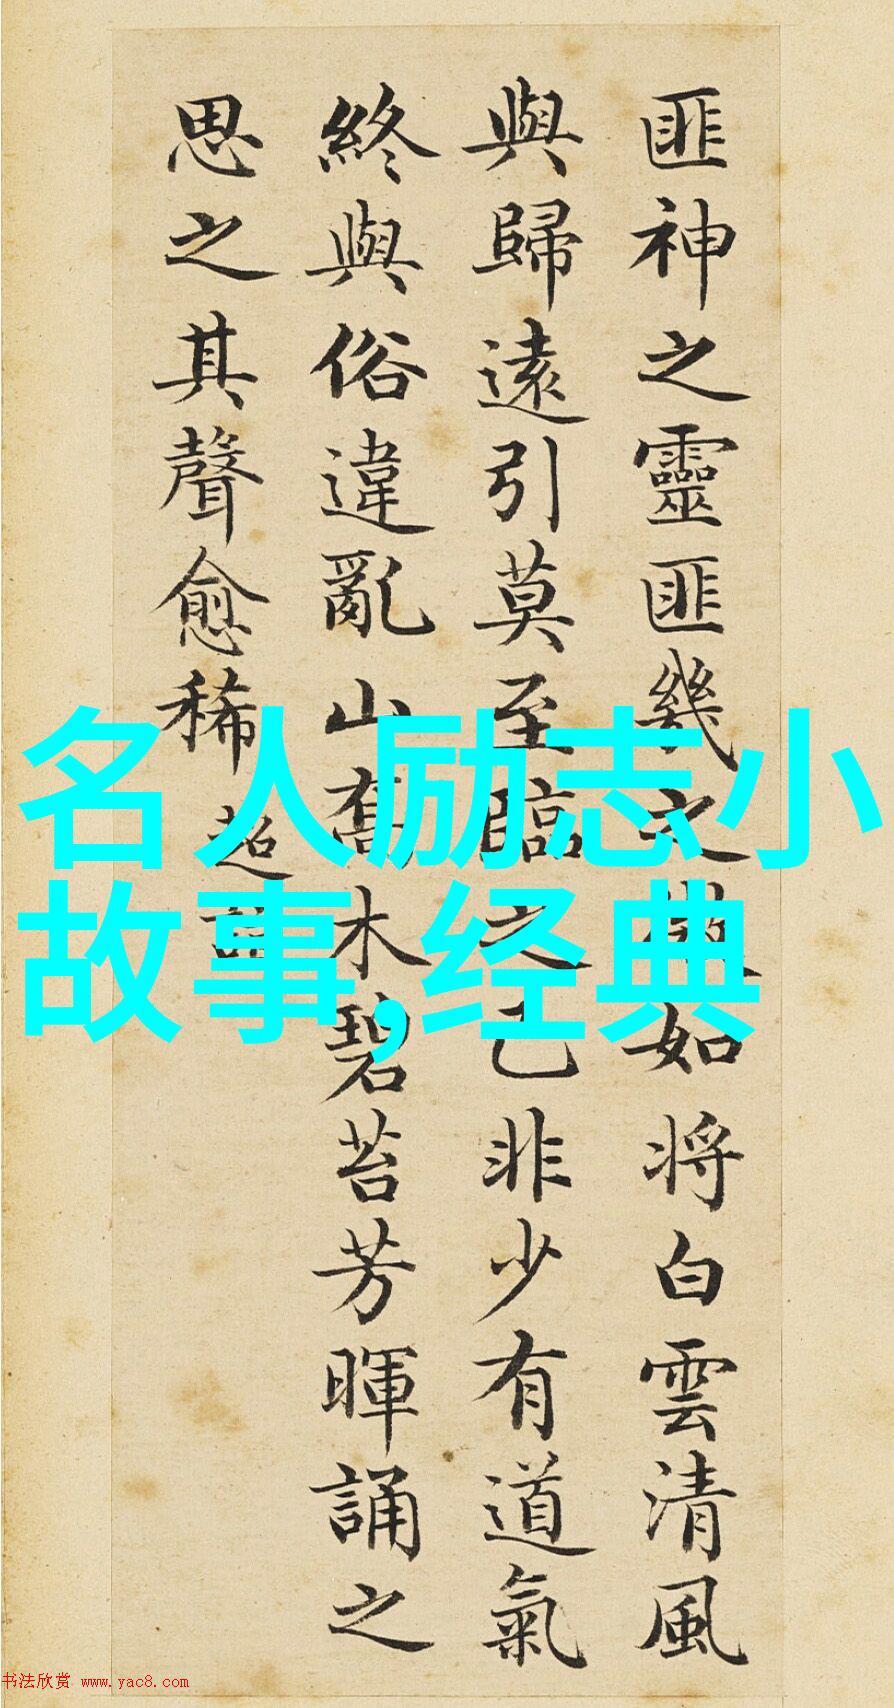 匪神之靈匪幾之微如将白雲清風
與歸遠引莫至臨之已非少有道氣
終與俗違亂山喬木碧苔芳暉誦之
思之其聲愈稀
超詣
名人励志小
故事,经典
书法欣赏 www.yac8.com